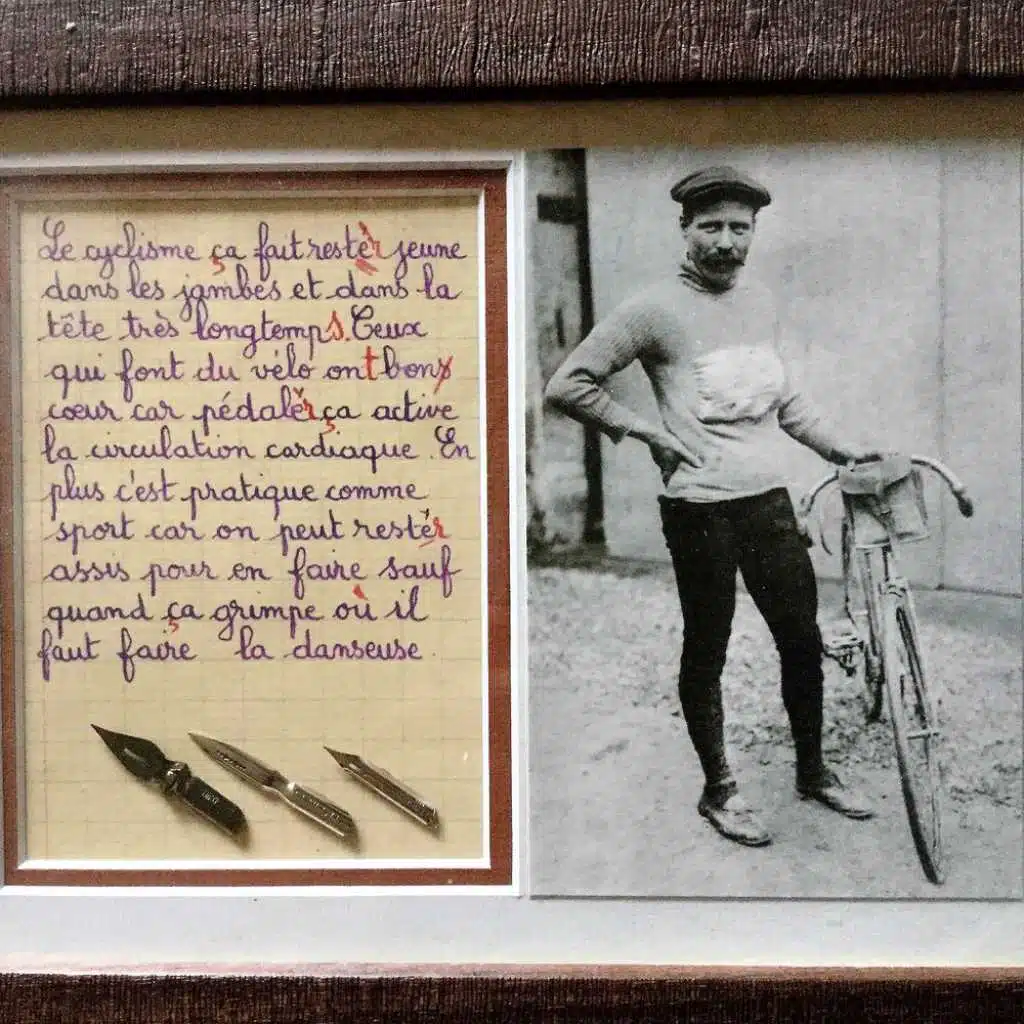 Le cyclisme ça fait rester jeune
dans les jambes et dans la
tête très longtemps. Ceux
qui font du vélo ont bon
cœur car pédaler ça active
la circulation cardiaque. En
plus c'est pratique comme
sport car on peut rester
assis pour en faire sauf
quand ça grimpe où il
faut faire la danseuse